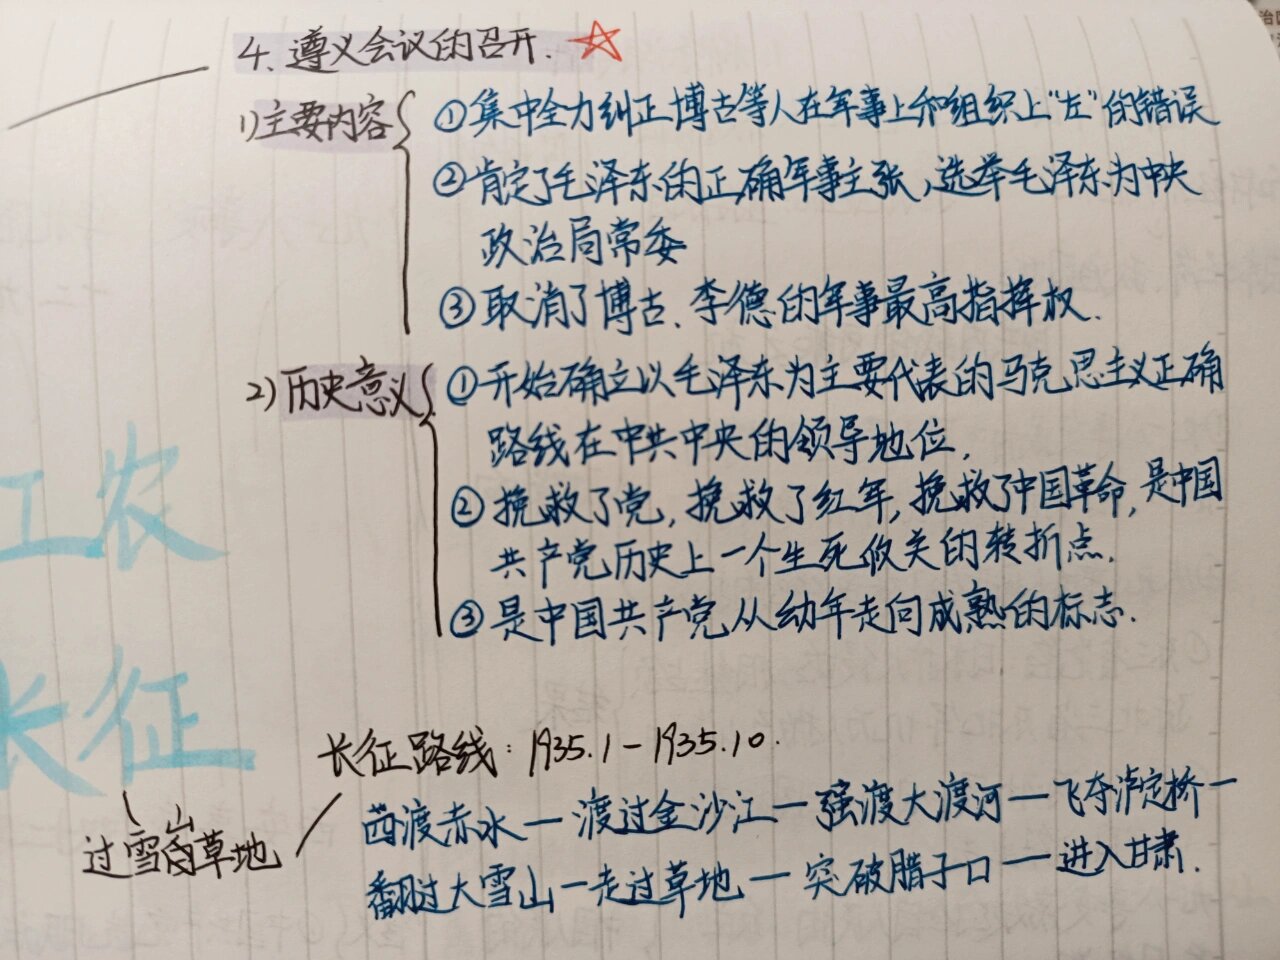 4. 遵义会议的召开.
1) 主要内容
① 集中全力纠正博古等人在军事上和组织上"左"的错误
② 肯定了毛泽东的正确军事主张,选举毛泽东为中央
政治局常委
③ 取消了博古、李德的军事最高指挥权.
2) 历史意义
① 开始确立以毛泽东为主要代表的马克思主义正确
路线在中共中央的领导地位.
② 挽救了党,挽救了红军,挽救了中国革命,是中国
共产党历史上一个生死攸关的转折点.
③ 是中国共产党从幼年走向成熟的标志.
工农
长征
长征路线: 1935.1-1935.10.
过雪山草地
四渡赤水—渡过金沙江—强渡大渡河—飞夺泸定桥—
翻过大雪山—走过草地—突破腊子口—进入甘肃.